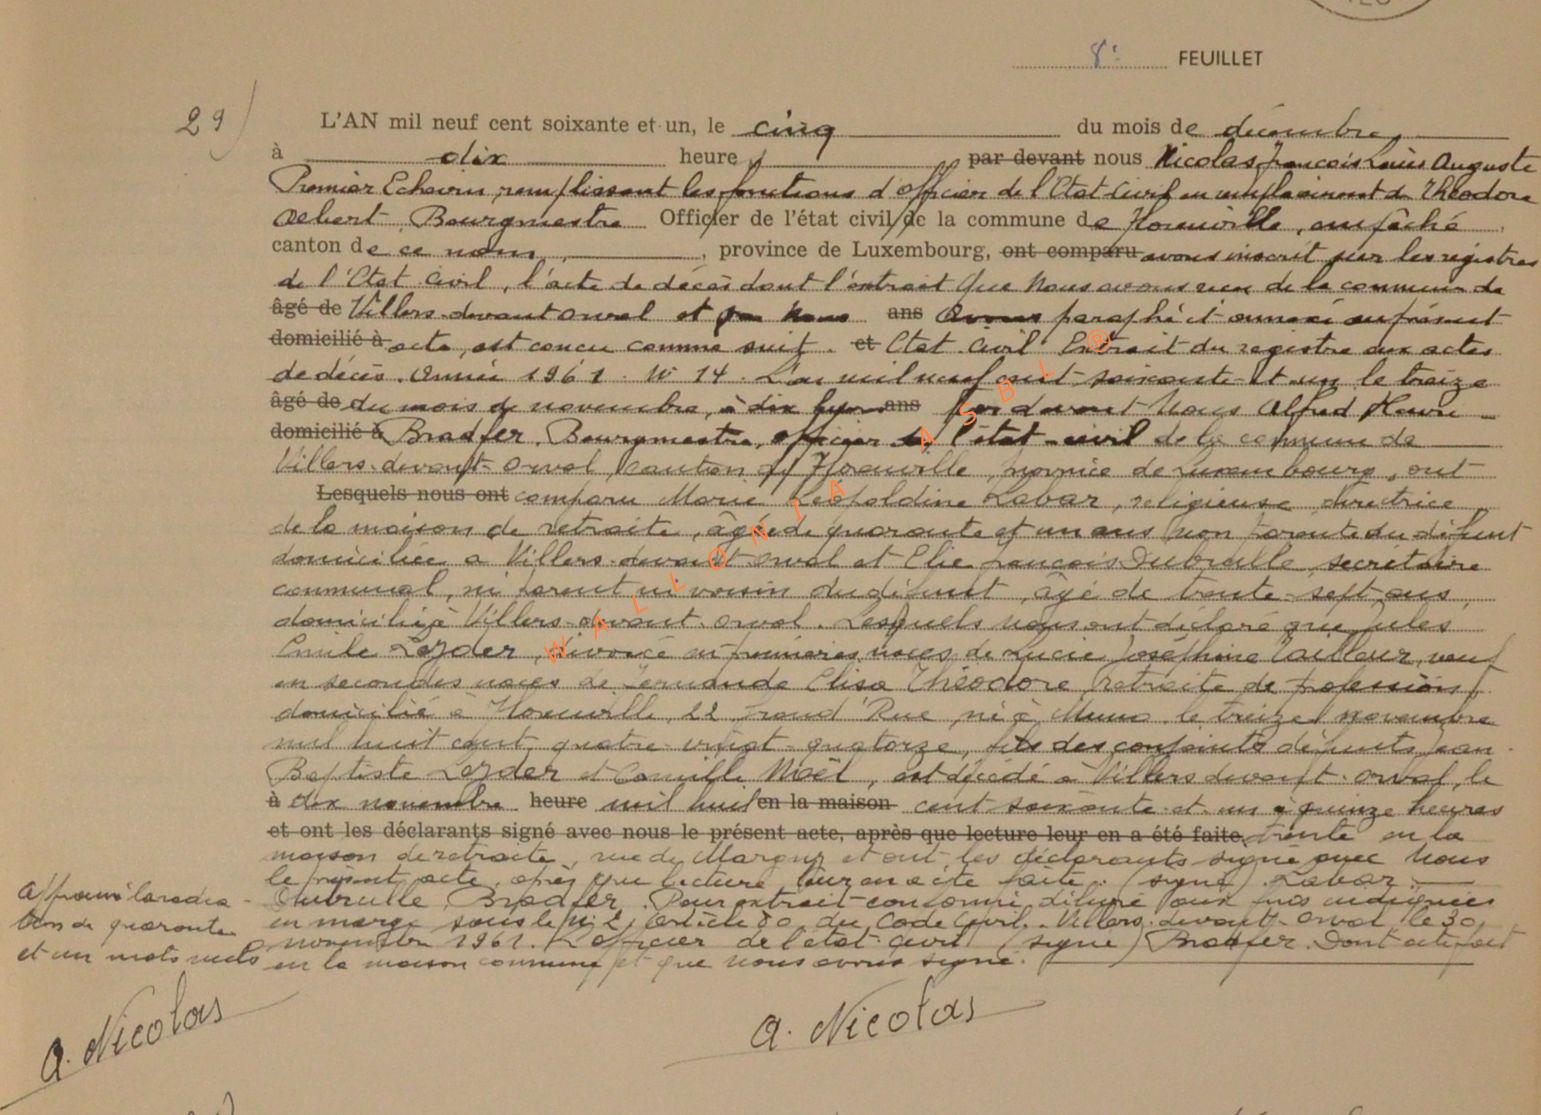 8e FEUILLET
29) L'AN mil neuf cent soixante et un, le cinq du mois de décembre,
à dix heure par devant nous Nicolas François Louis Auguste
Premier Echevin, remplissant les fonctions d'officier de l'Etat Civil en remplacement de Théodore
Albert, Bourgmestre Officier de l'état civil de la commune de Florenville, empêché,
canton de ce nom, province de Luxembourg, ont comparu avons inscrit sur les registres
de l'Etat Civil, l'acte de décès dont l'extrait que nous avons reçu de la commune de
âgé de Villers-devant-Orval et par nous ans avons paraphé et annexé au présent
domicilié à acte, est conçu comme suit. et Etat Civil Extrait du registre aux actes
de décès. Année 1961. N° 14. L'an mil neuf cent soixante et un le treize
âgé de du mois de novembre, à dix heures ans par devant Nous Alfred Henri
domicilié à Bradfer, Bourgmestre, officier de l'état-civil de la commune de
Villers-devant-Orval, canton de Florenville, province de Luxembourg, ont
Lesquels nous ont comparu Marie Léopoldine Labar, religieuse, directrice
de la maison de retraite, âgée de quarante et un ans, non parente du défunt
domiciliée à Villers-devant-Orval et Elie François Dubrulle, secrétaire
communal, ni parent ni voisin du défunt, âgé de trente-sept ans,
domicilié à Villers-devant-Orval. Lesquels nous ont déclaré que Jules
Emile Lejder, divorcé en premières noces de Lucie Joséphine Tailleur, veuf
en secondes noces de Fernande Elisa Théodore, retraité de profession,
domicilié à Florenville, 22 Grand'Rue, né à Muno le treize novembre
mil huit cent quatre-vingt-quatorze, fils des conjoints défunts Jean-
Baptiste Lejder et Camille Noël, est décédé à Villers devant-Orval, le
à dix novembre heure mil huit en la maison cent soixante et un à quinze heures
et ont les déclarants signé avec nous le présent acte, après que lecture leur en a été faite. trente en la
maison de retraite, rue de Margny et ont les déclarants signé avec Nous
le présent acte, après que lecture leur en a été faite. (signé) Labar.
Dubrulle, Bradfer. Pour extrait conforme délivré aux fins indiquées
en marge sous le N° 2, article 80 du Code Civil. Villers-devant-Orval le 30
novembre 1961. L'officier de l'état civil (signé) Bradfer. Dont acte fait
en la maison commune et que nous avons signé.
Approuvé la radia-
tion de quarante
et un mots nuls
A. Nicolas
A. Nicolas
WALLONIA ASBL ®